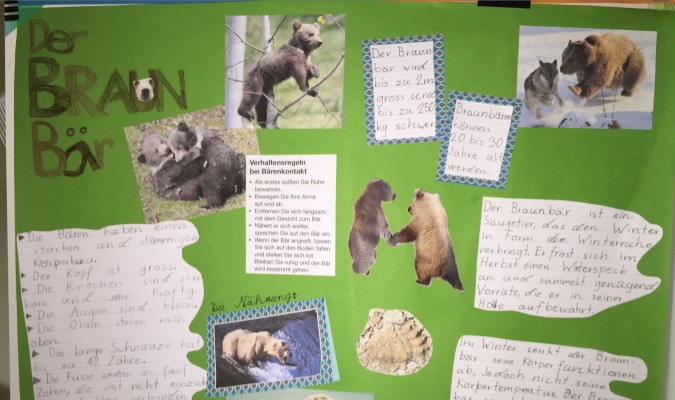 Der
BRAUN
Bär
Der Braun-
bär wird
bis zu 2m
gross und
bis zu 250
kg schwer
Braunbären
können
20 bis 30
Jahre alt
werden.
Verhaltensregeln
bei Bärenkontakt
• Als erstes sollten Sie Ruhe
bewahren.
• Bewegen Sie Ihre Arme
auf und ab.
• Entfernen Sie sich langsam,
mit dem Gesicht zum Bär.
• Nähert er sich weiter,
sprechen Sie auf den Bär ein.
• Wenn der Bär angreift, lassen
Sie sich auf den Boden fallen
und stellen Sie sich tot.
Bleiben Sie ruhig und der Bär
wird bestimmt gehen.
Der Braunbär ist ein
Säugetier, das den Winter
in Form der Winterruhe
verbringt. Er frisst sich im
Herbst einen Winterspeck
an und sammelt genügend
Vorräte, die er in seiner
Höhle aufbewahrt.
Die Bären haben einen
starken und stämmigen
Körperbau.
Der Kopf ist gross.
Die Knochen sind
und sehr kräftig.
Die Augen sind klein.
Die Ohren stehen nach
oben.
Die lange Schnauze hat
bis zu 42 Zähne.
Die Füsse enden in fünf
Zehen, die mit nicht
Die Nahrung:
Im Winter senkt der Braun-
bär seine Körperfunktionen
ab, jedoch nicht seine
Körpertemperatur. Der Braun-